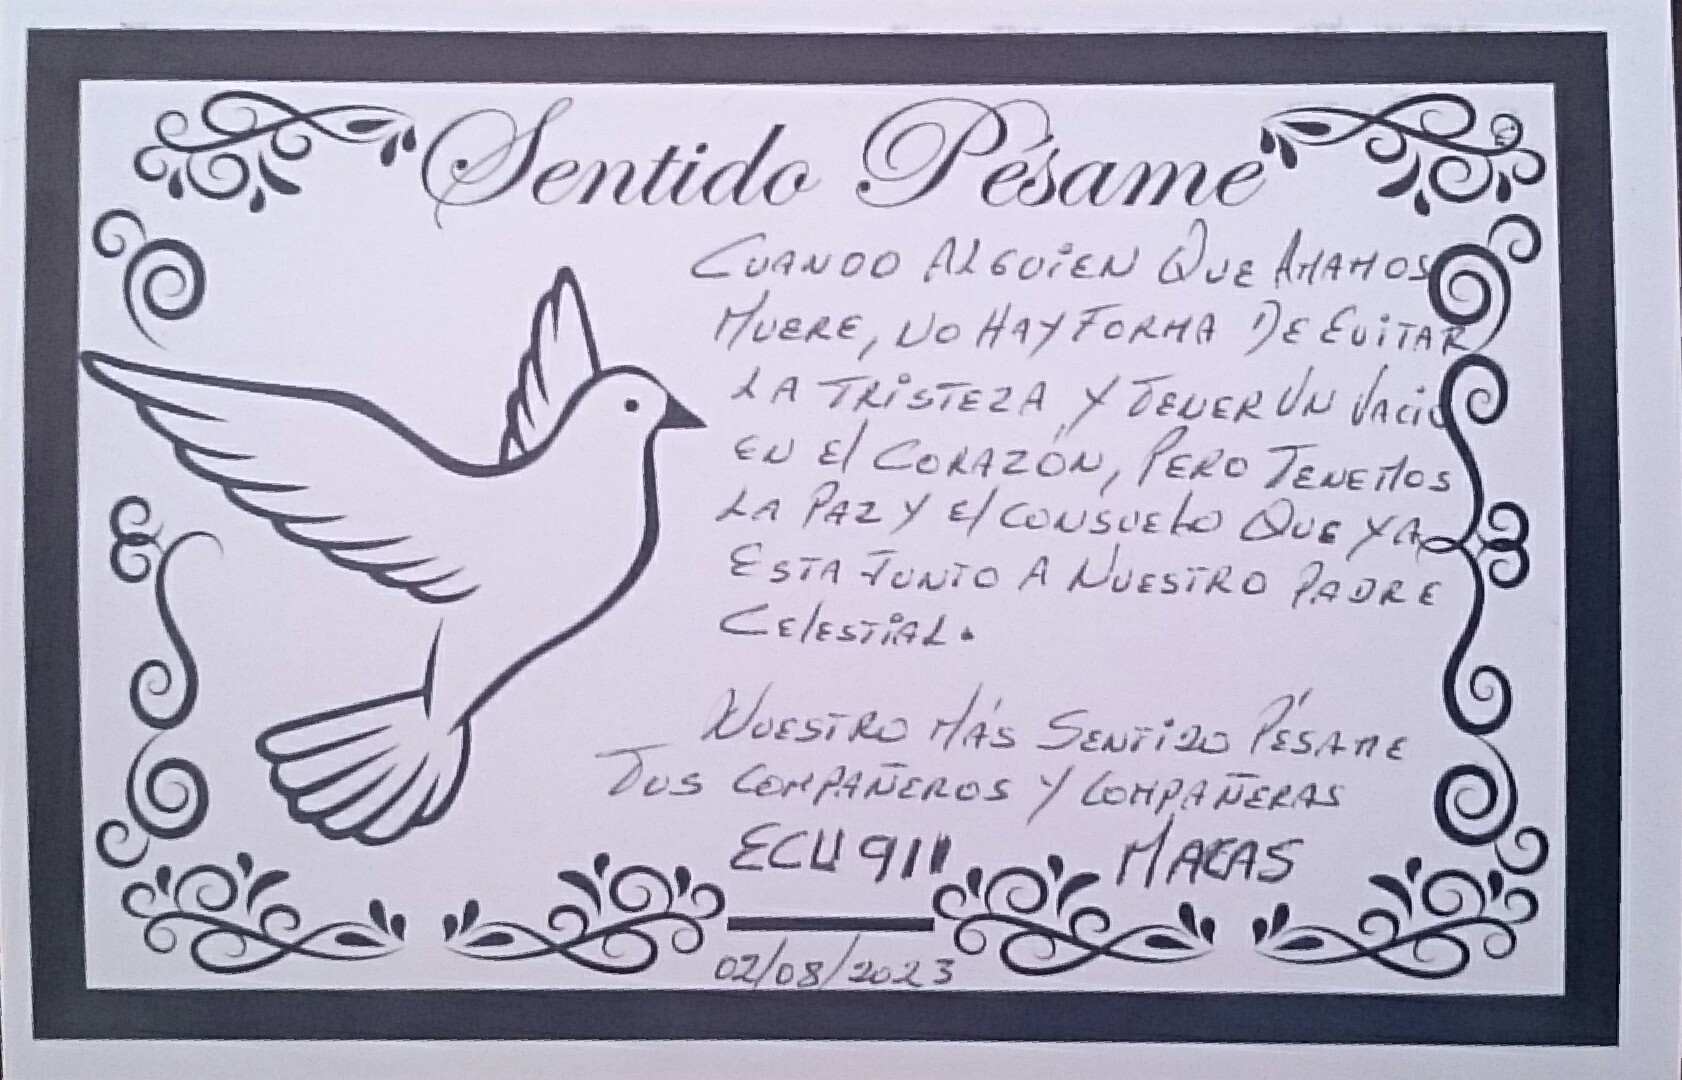 Sentido Pésame
CUANDO ALGUIEN QUE AMAMOS
MUERE, NO HAY FORMA DE EVITAR
LA TRISTEZA Y TENER UN VACIO
EN El CORAZÓN, PERO TENEMOS
LA PAZ Y El CONSUELO QUE YA
ESTA JUNTO A NUESTRO PADRE
CElESTIAL.
NUESTRO MÁS SENTIDO PÉSAME
TUS COMPAÑEROS Y COMPAÑERAS
ECU 911 MACAS
02/08/2023